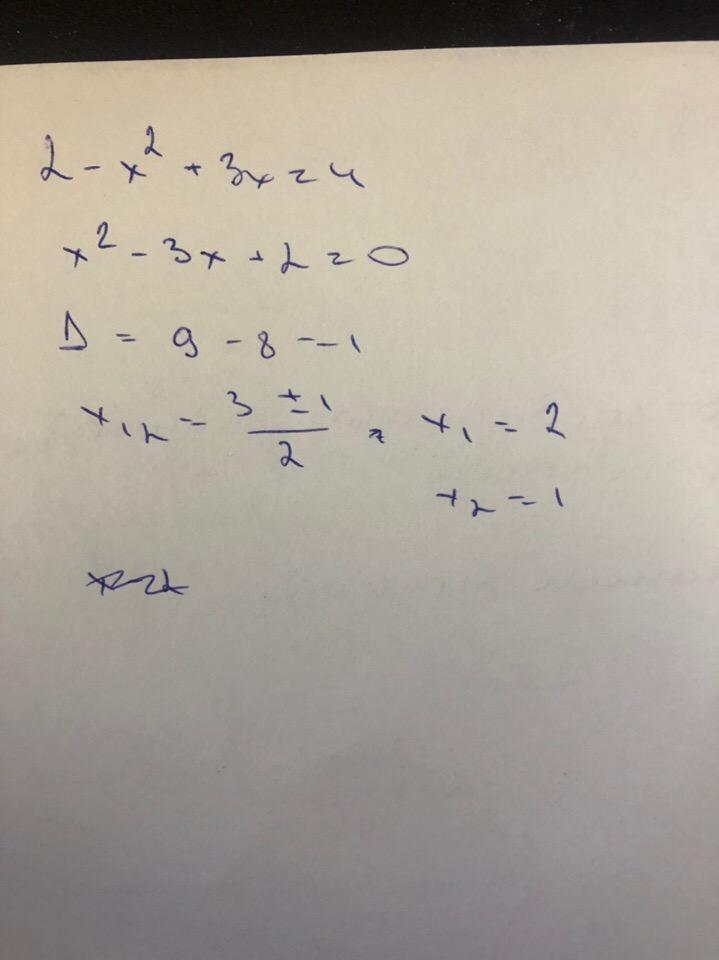 2 - x² + 3x = 4
x² - 3x + 2 = 0
D = 9 - 8 = 1
x₁₂ = (3 ± 1)/2 = x₁ = 2
x₂ = 1